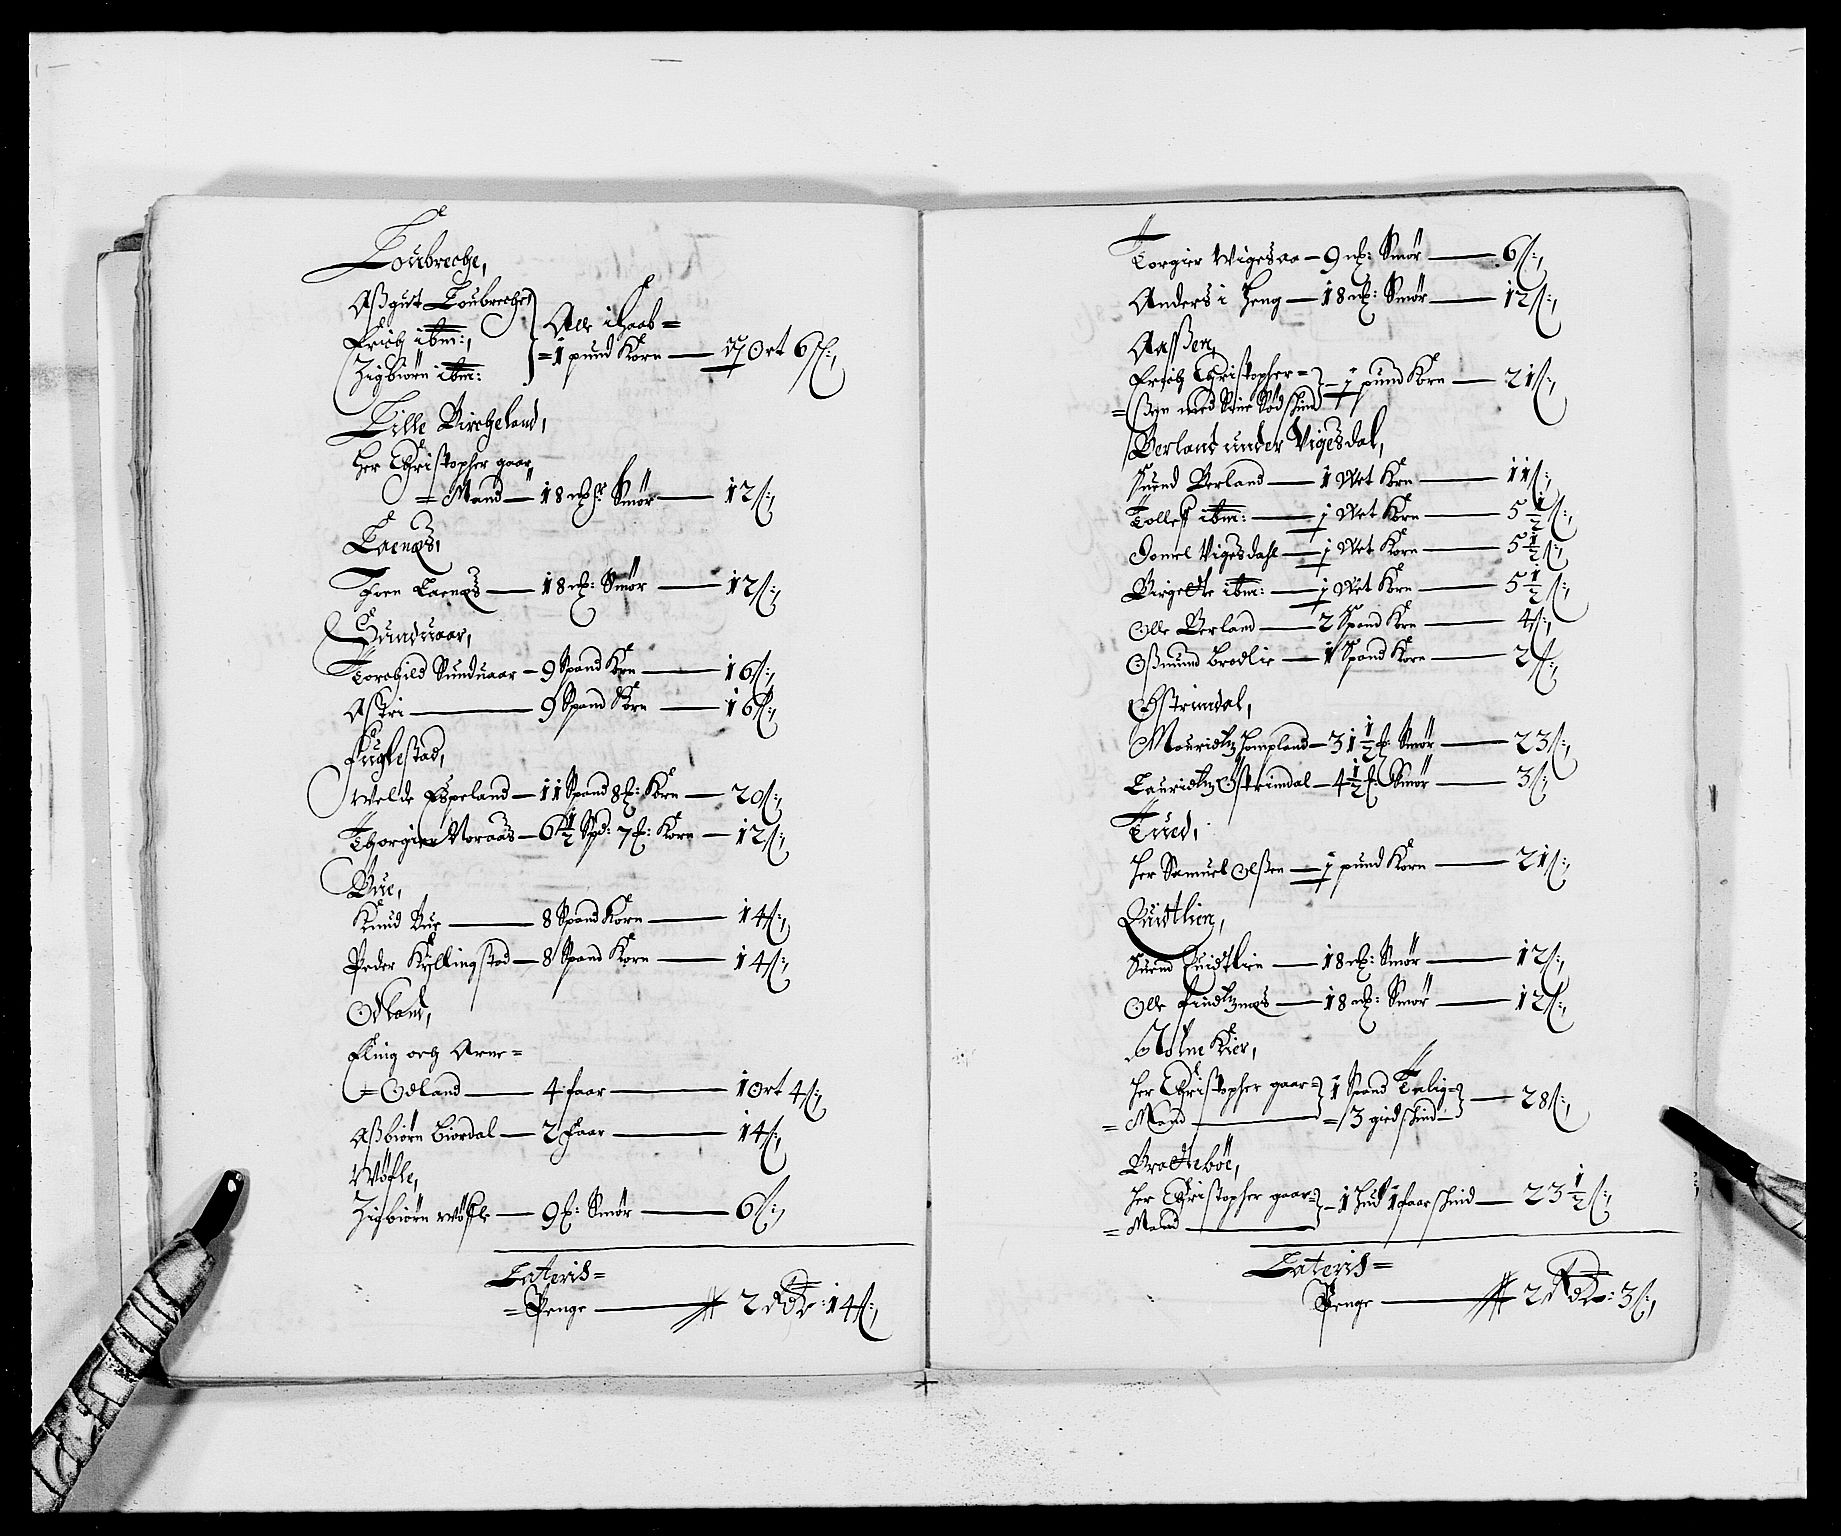 Loubreche,
Assgut Loubreche
Erich ibm:,
Sigbiörn ibm:
Alle i haab=
=1 pund Korn — Ort 6 ß:,
Lille Birckeland,
Her Christopher gaar
= Mand — 18 mrk: Smör — 12 ß:,
Laenes,
Laenes — 18 mrk: Smör — 12 ß:,
Sunduaar,
Torchild Sunduaar — 9 Spand Korn — 16 ß:,
Astri — 9 Spand Korn — 16 ß:,
Fuglestad,
Welde Espeland — 11 Spand 8 mrk: Korn — 20 ß:,
Thorgier Noraas — 6 1/2 Spd: 7 mrk: Korn — 12 ß:,
Bue,
Knud Bue — 8 Spand Korn — 14 ß:,
Peder Kyllingstad — 8 Spand Korn — 14 ß:,
Odland,
Elling och Arne=
=Odland — 4 faar — 1 Ort 4 ß:,
Assbiörn Liordal — 2 faar — 14 ß:,
Wöfle,
Sigbiörn Wöfle — 9 mrk: Smör — 6 ß:,
Lateris=
=Penge — 2 Rdlr: 14 ß:,
Torgier Wigesaa — 9 mrk: Smör — 6 ß:,
Anders i Heng — 18 mrk: Smör — 12 ß:,
Aassen,
Erich Christopher=
=ßen med Sine Södschind — 1 pund Korn — 21 ß:,
Berland under Vigesdal,
Suend Berland — 1 Wet Korn — 11 ß:,
Tollef ibm: — 1 Wet Korn — 5 1/2 ß:,
Vigesdahl — 1 Wet Korn — 5 1/2 ß:,
Birgette ibm: — 1 Wet Korn — 5 1/2 ß:,
Olle Berland — 2 Spand Korn — 4 ß:,
Oßmund Brodlie — 1 Spand Korn — 2 ß:,
Östrimdal,
Mouridtz Hompland — 31 1/2 mrk: Smör — 23 ß:,
Lauridtz Östrimdal — 4 1/2 mrk: Smör — 3 ß:,
Tued,
Her Samuel Olßen — 1 pund Korn — 21 ß:,
Quidtlien,
Suend Quidtlien — 18 mrk: Smör — 12 ß:,
Olle — 18 mrk: Smör — 12 ß:,
Holme Kier,
Her Christopher gaar= 1 Spand Tælig=
= Mand — = 3 giedschind — 28 ß:,
Bratteböe,
Her Christopher gaar= — 1 Hud 1 faarschind — 23 1/2 ß:,
= Mand
Lateris=
Penge — 2 Rdlr: 3 ß:,